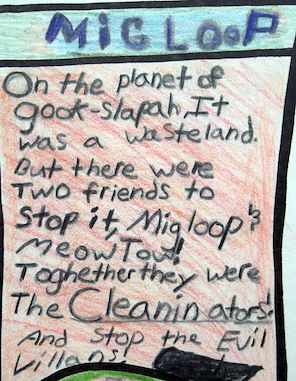 MIGLOOP
On the planet of
gook-slapah, It
was a wasteland.
But there were
TWO friends to
Stop it, Migloop &
MeowTow!
Toghether they were
The Cleaninators!
And Stop the Evil
Villans!